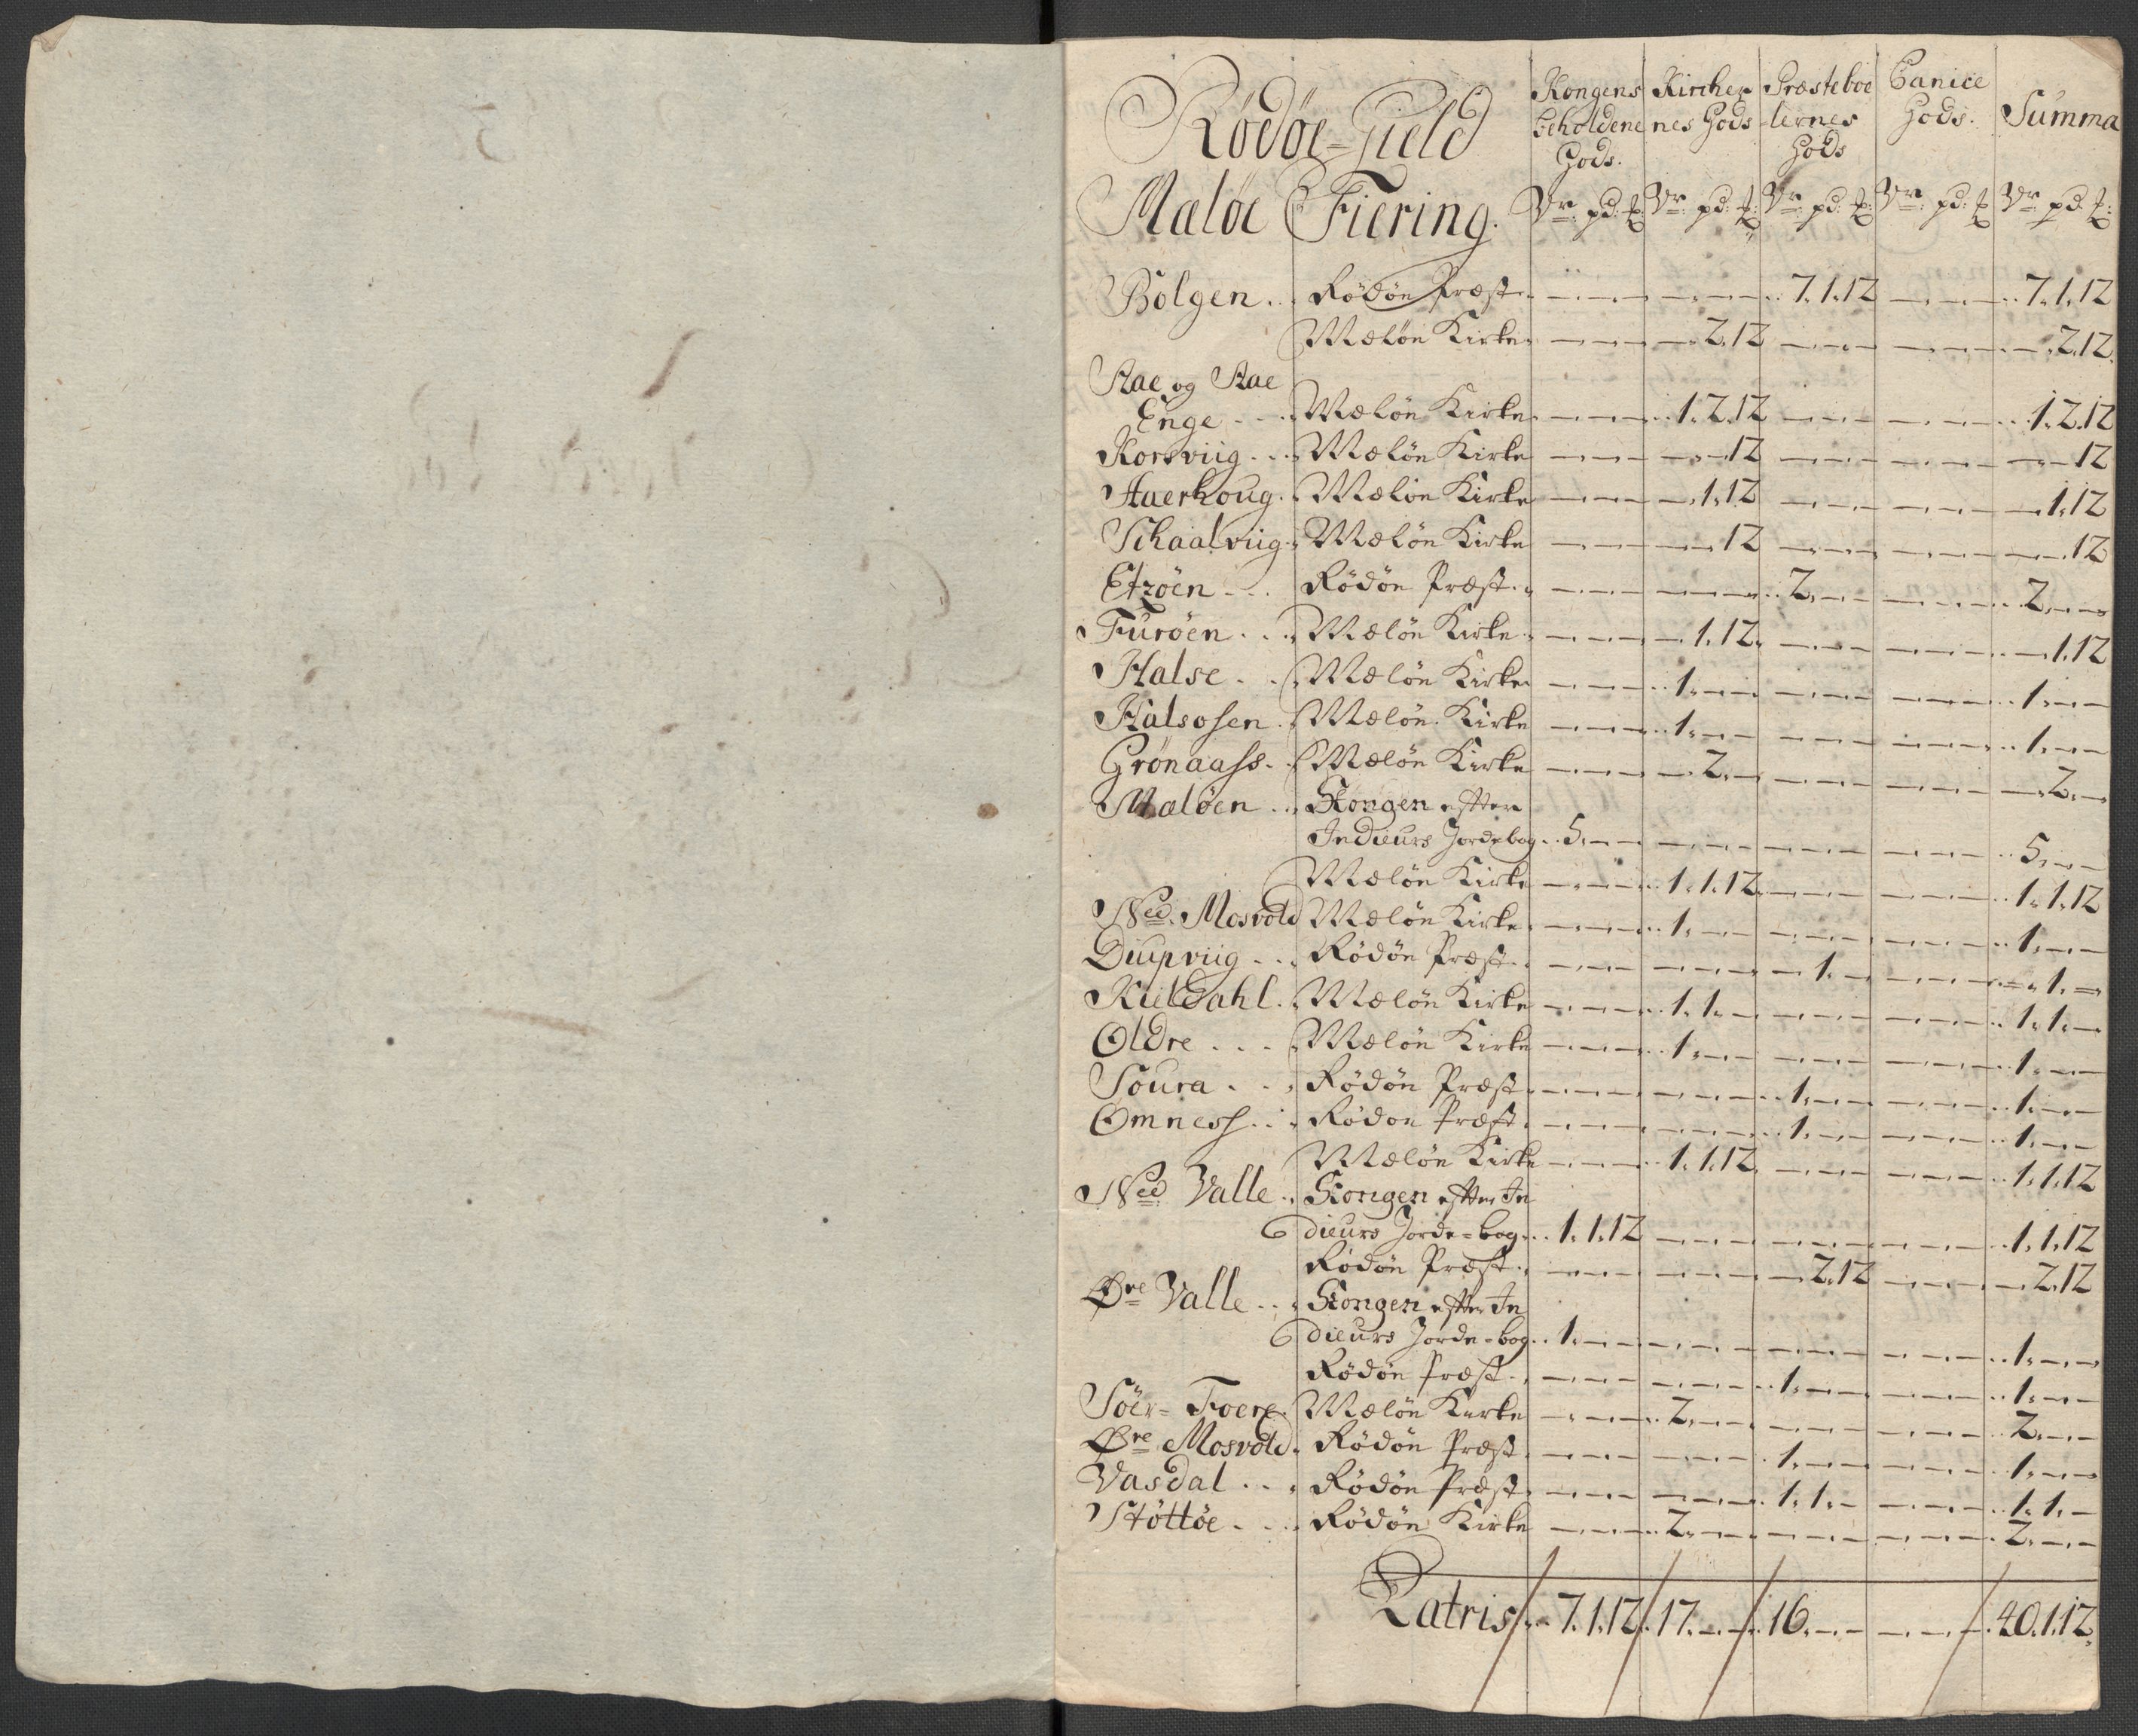 Rödöe-Gield
Kongens beholdene Gods.
Kirchernes Gods
Præsteboelernes Gods
Canice Gods.
Summa
Maløe Fiering.
Vr: pd: Vr: pd: Vr: pd: Vr: pd: Vr: pd:
Bolgen... Rödön Præst. 7.1.12 7.1.12
Mæløn Kirke 2.12 2.12
Aae og Aae
Enge... Mæløn Kirke 1.2.12 1.2.12
Korsviig... Mæløn Kirke 12 12
Aaerhoug. Mæløn Kirke 1.12 1.12
Schaalviig. Mæløn Kirke 12 12
Etzöen... Rödön Præst. 2. 2.
Furöen... Mæløn Kirke 1.12 1.12
Halse.. Mæløn Kirke 1. 1.
Halsosen. Mæløn Kirke 1. 1.
Grønaass.. Mæløn Kirke 2. 2.
Maløen... Kongen efter
Indieurs Jordebog. 5. 5.
Mæløn Kirke 1.1.12 1.1.12
Ned. Mosvold Mæløn Kirke 1. 1.
Diupviig... Rödön Præst. 1. 1.
Kieldahl. Mæløn Kirke 1.1. 1.1.
Oldre... Mæløn Kirke 1. 1.
Soura... Rödön Præst 1. 1.
Omness... Rödön Præst. 1. 1.
Mæløn Kirke 1.1.12 1.1.12
Ned Valle.. Kongen efter In
dieurs Jorde=bog. 1.1.12 1.1.12
Rödön Præst. 2.12 2.12
Øre Valle... Kongen efter In
dieurs Jorde=bog. 1. 1.
Rödön Præst. 1. 1.
Söer=Foere. Mæløn Kirke 2. 2.
Øre Mosvold. Rödön Præst 1. 1.
Vasdal... Rödön Præst. 1.1. 1.1.
Støttöe... Rödön Kirke 2. 2.
Latris 7.1.12 17. 16. 40.1.12